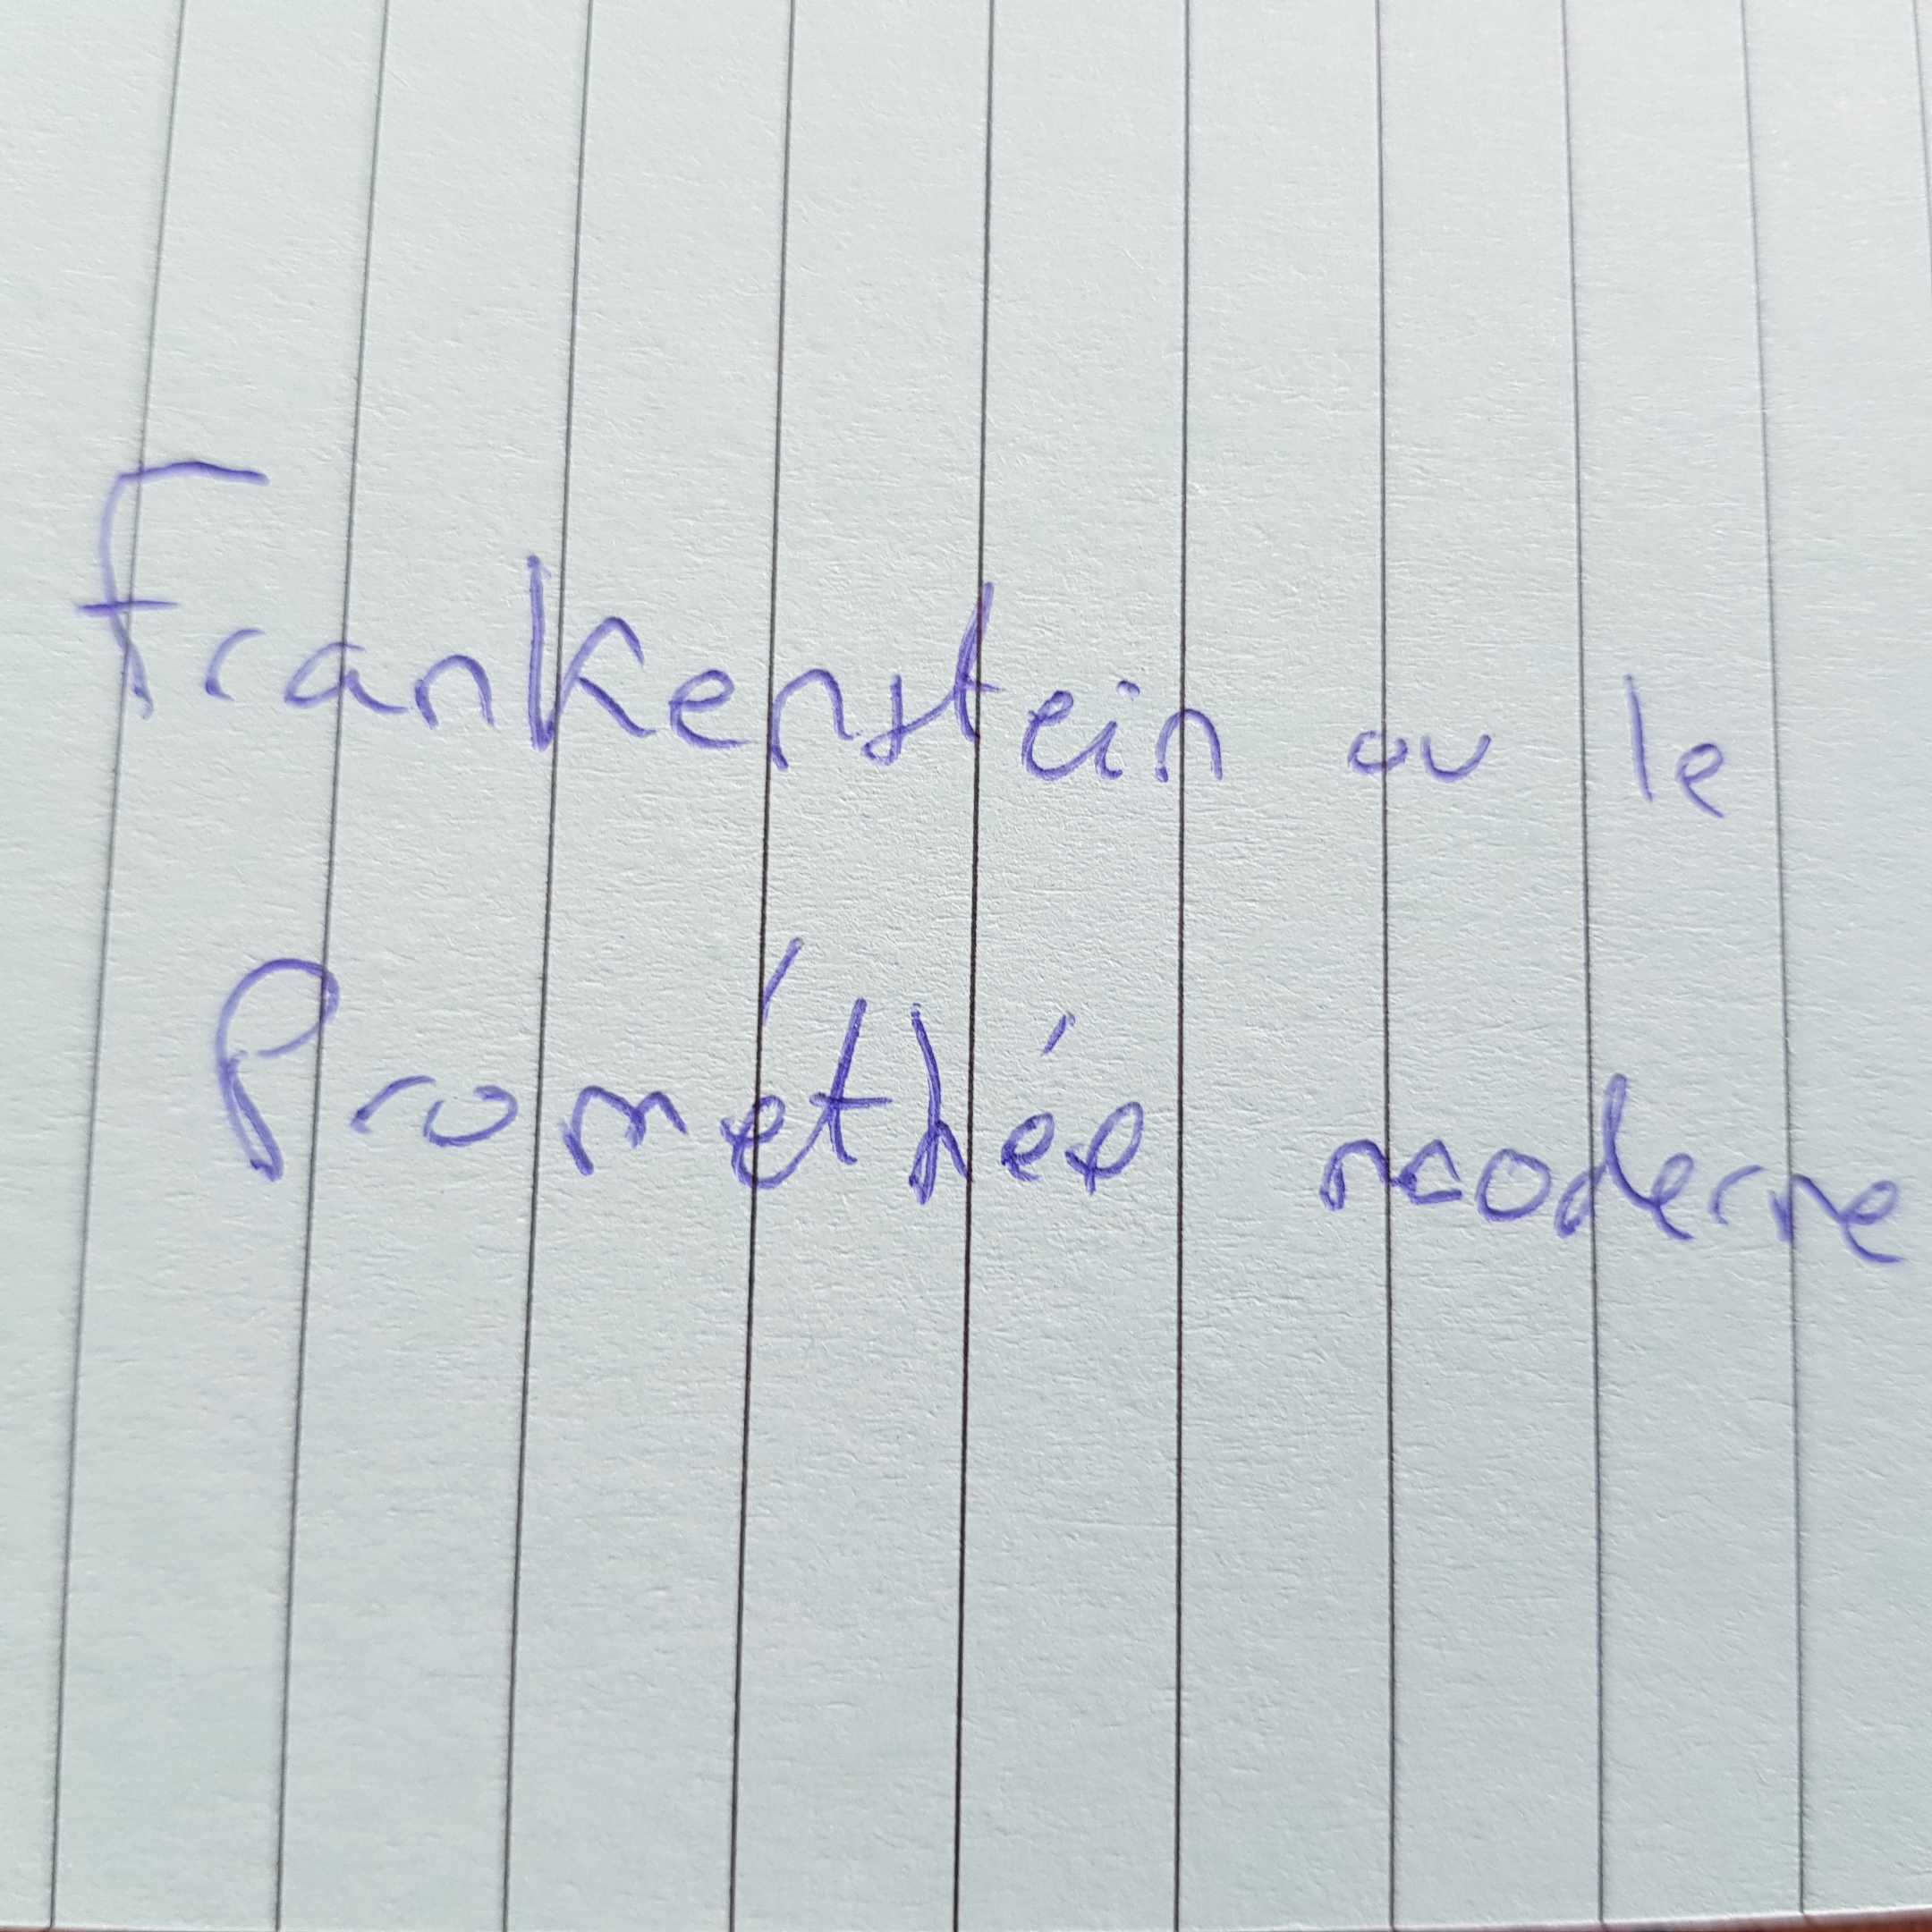 Frankenstein ou le
Prométhée moderne